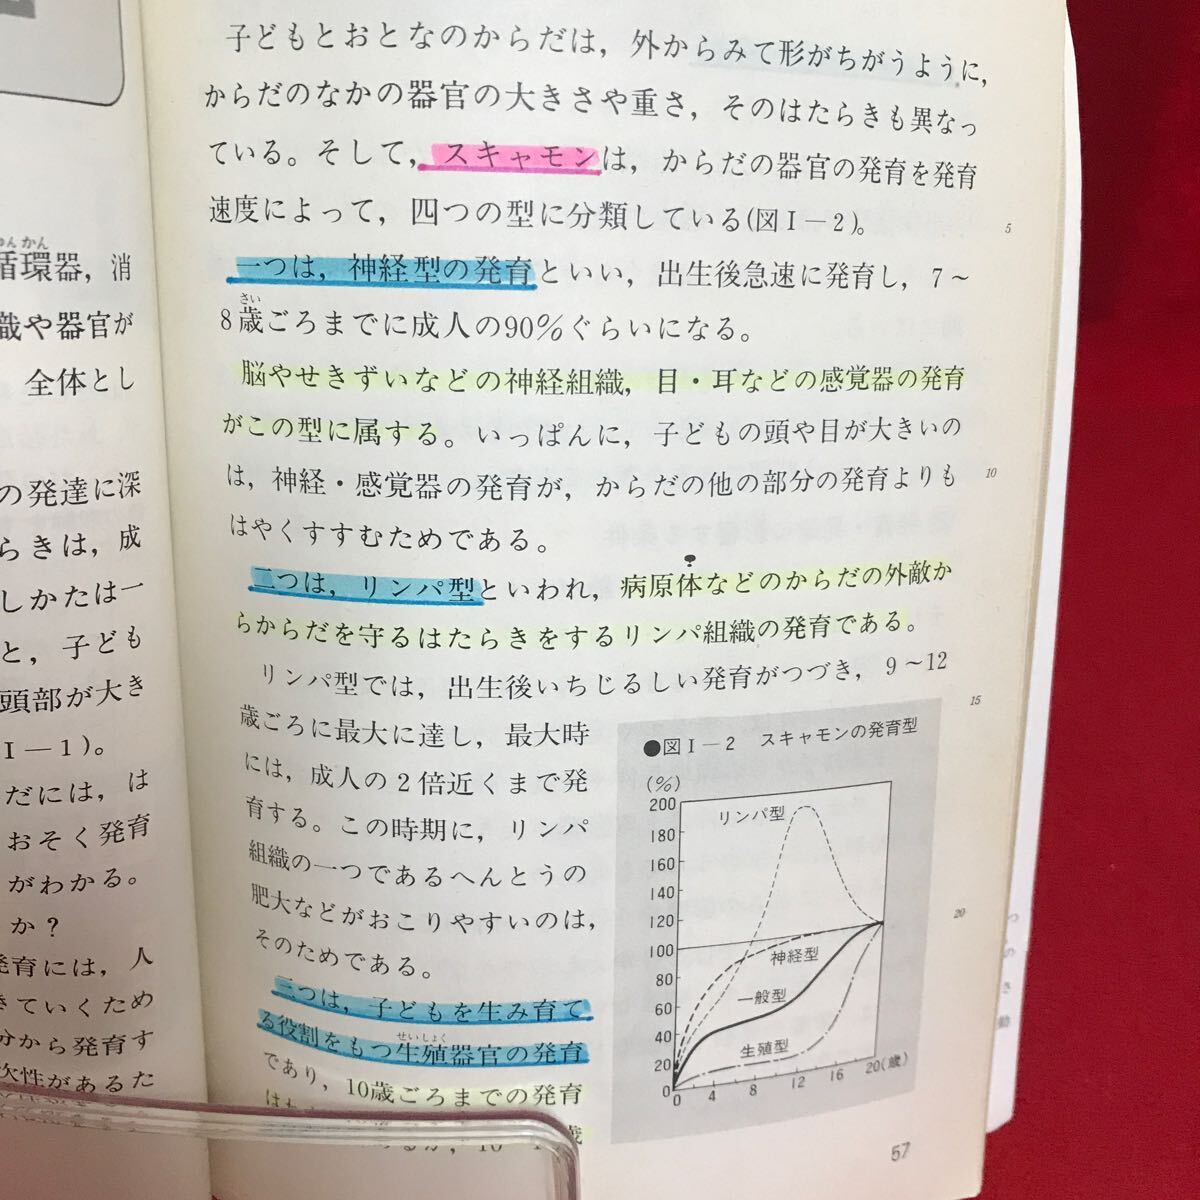 ゅんかん
循環器，消
織や器官が
全体とし
の発達に深
らきは，成
しかたは一
と，子ども
頭部が大き
I－1)。
だには，は
おそく発育
がわかる。
か？
発育には，人
きていくため
分から発育す
次性があるた
子どもとおとなのからだは，外からみて形がちがうように，
からだのなかの器官の大きさや重さ，そのはたらきも異なっ
ている。そして，スキャモンは，からだの器官の発育を発育
速度によって，四つの型に分類している(図I－2)。
5
一つは，神経型の発育といい，出生後急速に発育し，7～
さい
8歳ごろまでに成人の90％ぐらいになる。
脳やせきずいなどの神経組織，目・耳などの感覚器の発育
がこの型に属する。いっぱんに，子どもの頭や目が大きいの
は，神経・感覚器の発育が，からだの他の部分の発育よりも
10
はやくすすむためである。
二つは，リンパ型といわれ，病原体などのからだの外敵か
らからだを守るはたらきをするリンパ組織の発育である。
リンパ型では，出生後いちじるしい発育がつづき，9～12
15
歳ごろに最大に達し，最大時
には，成人の2倍近くまで発
育する。この時期に，リンパ
組織の一つであるへんとうの
肥大などがおこりやすいのは，
そのためである。
三つは，子どもを生み育て
せいしょく
る役割をもつ生殖器官の発育
であり，10歳ごろまでの発育
●図I－2 スキャモンの発育型
(%)
200
180
160
140
120
100
80
60
40
20
0
リンパ型
神経型
一般型
生殖型
0 4 8 12 16 20(歳)
20
57